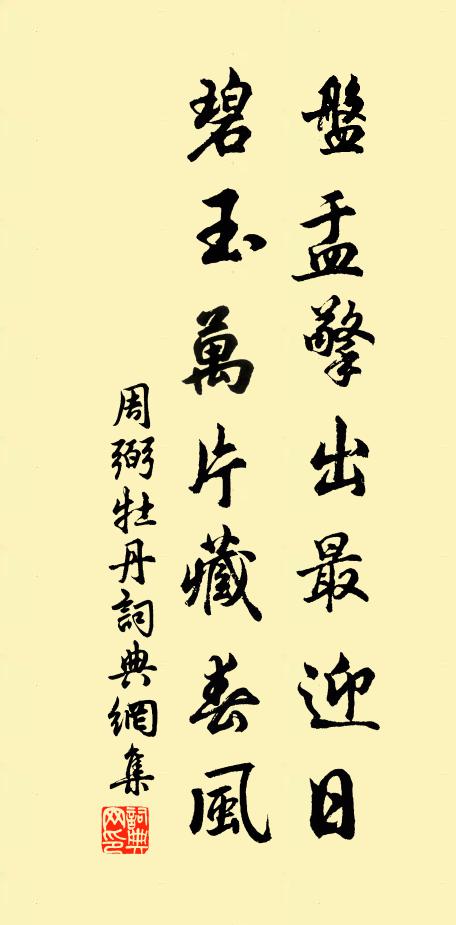 盤盂擎出最迎日
碧玉萬片藏春風
周弼牡丹詞典網集
詞典网印